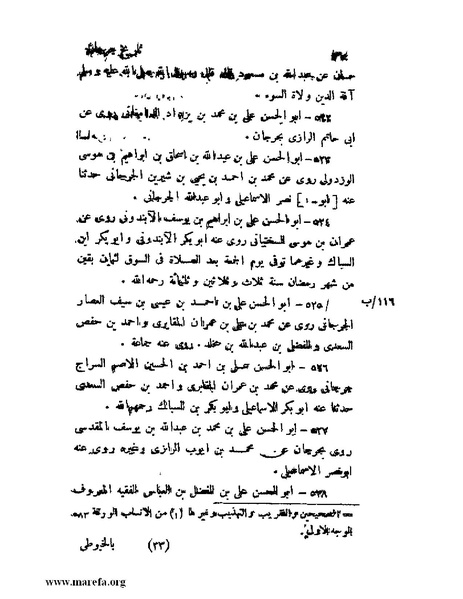 تاريخ جرجان
حسان عن عبد الله بن مسعود قال قال رسول الله صلى الله عليه وسلم
آفة الدين ولاة السوء.
٥٣٢ – ابو الحسن علي بن محمد بن روى عن
ابى حاتم الرازى بجرجان.
٥٣٣ – ابو الحسن علي بن عبدالله بن اسحاق بن ابراهيم بن موسى
الوزدولى روى عن محمد بن احمد بن يحيى بن شيرين الجرجانى حدثنا
عنه [ابو-١] نصر الاسماعيلى وابو عبدالله الجرجانى.
٥٣٤ – ابو الحسن علي بن ابراهيم بن يوسف الآبندونى روى عن
عمران بن موسى السختيانى روى عنه ابو بكر الآبندونى وابوبكر ابن
السباك وغيرهما توفى يوم الجمعة بعد الصلاة فى السوق لثمان بقين
من شهر رمضان سنة ثلاث وثلاثين وثلثمائة رحمه الله.
١١٦/ب
/ ٥٣٥ – ابو الحسن علي بن احمد بن عيسى بن سيف العصار
الجرجانى روى عن محمد بن على بن عمران المقابرى واحمد بن حفص
السعدى والمفضل بن عبدالله بن مخلد. روى عنه جماعة.
٥٣٦ – ابو الحسن على بن احمد بن الحسين الاصم السراج
جرجانى روى عن محمد بن عمران المقابرى واحمد بن حفص السعدى
حدثنا عنه ابو بكر الاسماعيلى وابو بكر بن السباك رحمهم الله.
٥٣٧ – ابو الحسن على بن محمد بن عبدالله بن يوسف المقدسى
روى بجرجان عن محمد بن ايوب الرازى وغيره روى عنه
ابو نصر الاسماعيلى.
٥٣٨ – ابو الحسن على بن المفضل بن العباس الفقيه المعروف
والتقريب والتهذيب وغيرها (١) من الانساب الورقة
الوجه الاول.
(٣٣)
بالخيوطى
www.marefa.org